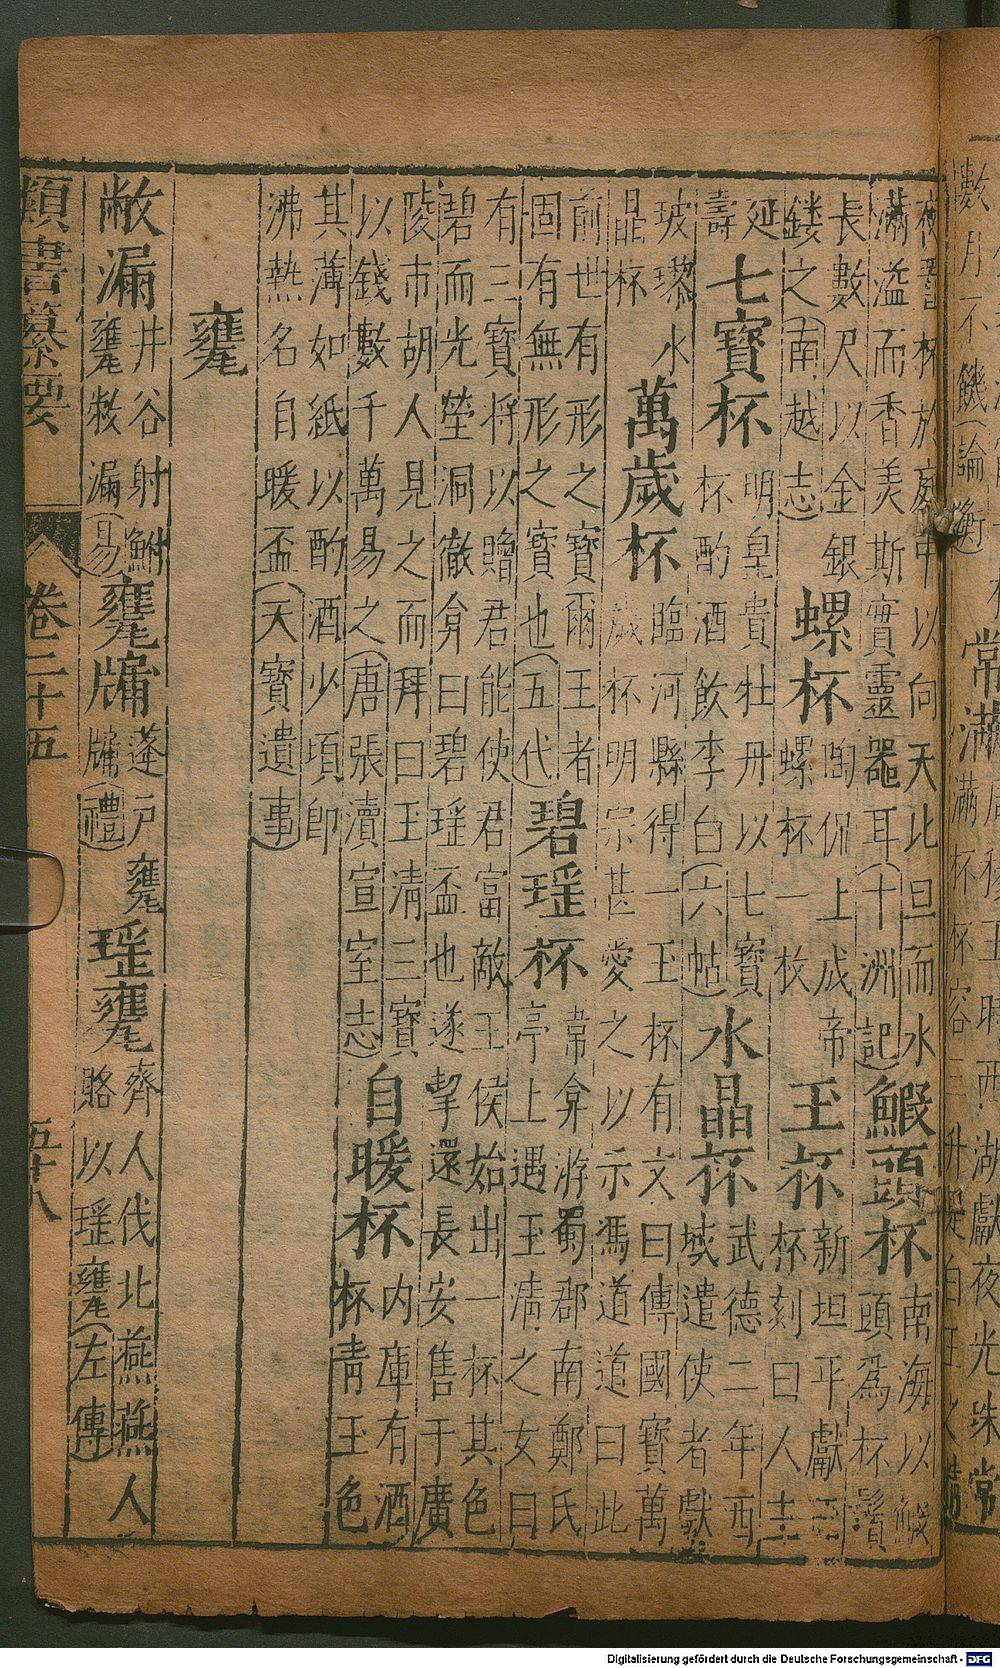 穆王時西湖獻夜光珠常
數月不饑(論衡)
夜置杯於庭中以向天比旦而水
滿溢而香美斯實靈器耳(十洲記)
鰕頭杯
南海以鰕
頭為杯鬚
長數尺以金銀
鏤之(南越志)
螺杯
陶侃上成帝
螺杯一枚
玉杯
新垣平獻玉
杯刻曰人主
延
壽
七寶杯
明皇貴牡丹以七寶
杯酌酒飲李白(六帖)
水晶杯
武德二年西
域遣使者獻
玻瓈水
晶杯
萬歲杯
臨河縣得一玉杯有文曰傳國寶萬
歲杯明宗甚愛之以示馮道道曰此
前世有形之寶爾王者
固有無形之寶也(五代)
碧瑤杯
韋弇游蜀郡南鄭氏
亭上遇玉清之女曰
有三寶將以贈君能使君富敵王侯始出一杯其色
碧而光瑩洞徹弇曰碧瑤盃也遂挈還長安售于廣
陵市胡人見之而拜曰玉清三寶
以錢數千萬易之(唐張瀆宣室志)
自暖杯
內庫有酒
杯青玉色
其薄如紙以酌酒少頃即
沸熱名自暖盃(天寶遺事)
甕
敝漏
井谷射鮒
甕敝漏(易)
甕牖
蓬戶甕
牖(禮)
瑤甕
齊人伐北燕燕人
賂以瑤甕(左傳)
類書纂要 卷二十五 五十八
Digitalisierung gefördert durch die Deutsche Forschungsgemeinschaft - DFG